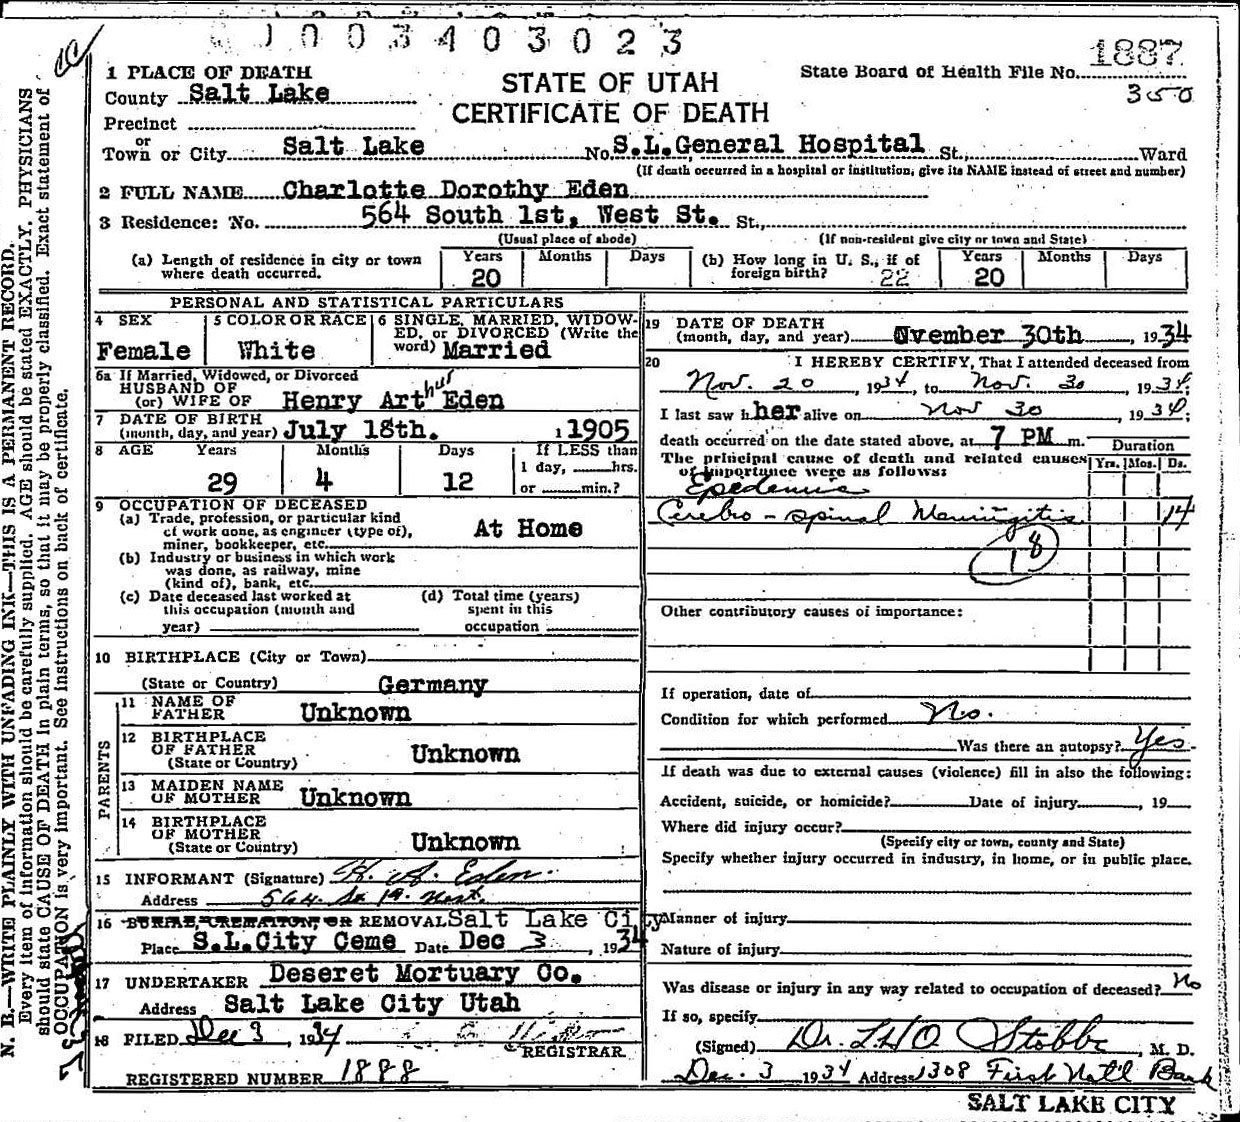 1003403023
1887
State Board of Health File No.
350
1 PLACE OF DEATH
County Salt Lake
STATE OF UTAH
CERTIFICATE OF DEATH
Precinct
or
Town or City Salt Lake No. S.L.General Hospital St., Ward
(If death occurred in a hospital or institution, give its NAME instead of street and number)
2 FULL NAME Charlotte Dorothy Eden
3 Residence: No. 564 South 1st. West St. St.,
(Usual place of abode) (If non-resident give city or town and State)
(a) Length of residence in city or town where death occurred. Years 20 Months Days
(b) How long in U. S., if of foreign birth? 22 Years 20 Months Days
PERSONAL AND STATISTICAL PARTICULARS
4 SEX Female
5 COLOR OR RACE White
6 SINGLE, MARRIED, WIDOW-
ED, or DIVORCED (Write the
word) Married
6a If Married, Widowed, or Divorced
HUSBAND OF
(or) WIFE OF Henry Arthur Eden
7 DATE OF BIRTH
(month, day, and year) July 18th. 1905
8 AGE Years 29 Months 4 Days 12 If LESS than
1 day, hrs.
or min.?
9 OCCUPATION OF DECEASED
(a) Trade, profession, or particular kind
of work done, as engineer (type of),
miner, bookkeeper, etc. At Home
(b) Industry or business in which work
was done, as railway, mine
(kind of), bank, etc.
(c) Date deceased last worked at
this occupation (month and
year)
(d) Total time (years)
spent in this
occupation
10 BIRTHPLACE (City or Town)
(State or Country) Germany
PARENTS
11 NAME OF
FATHER Unknown
12 BIRTHPLACE
OF FATHER
(State or Country) Unknown
13 MAIDEN NAME
OF MOTHER Unknown
14 BIRTHPLACE
OF MOTHER
(State or Country) Unknown
15 INFORMANT (Signature) H. A. Eden.
Address 564 So 1st. West.
16 BURIAL, CREMATION, OR REMOVAL Salt Lake City
Place S.L.City Ceme Date Dec 3, 1934
17 UNDERTAKER Deseret Mortuary Co.
Address Salt Lake City Utah
18 FILED Dec 3, 1934
REGISTRAR
REGISTERED NUMBER 1888
19 DATE OF DEATH
(month, day, and year) Nvember 30th, 1934
20 I HEREBY CERTIFY, That I attended deceased from
Nov. 20, 1934, to Nov. 30 1934.
I last saw h her alive on Nov 30 1934;
death occurred on the date stated above, at 7 PM m.
The principal cause of death and related causes
of importance were as follows:
Duration
Yrs. Mos. Ds.
Epedemic
Cerebro-spinal Meningitis 14
18
Other contributory causes of importance:
If operation, date of
Condition for which performed No.
Was there an autopsy? Yes
If death was due to external causes (violence) fill in also the following:
Accident, suicide, or homicide? Date of injury, 19
Where did injury occur?
(Specify city or town, county and State)
Specify whether injury occurred in industry, in home, or in public place.
Manner of injury
Nature of injury
Was disease or injury in any way related to occupation of deceased? No
If so, specify
(Signed) Dr. L.H.O Stobbe, M. D.
Dec. 3 1934 Address 1308 First Nat'l Bank
SALT LAKE CITY
N. B.—WRITE PLAINLY WITH UNFADING INK—THIS IS A PERMANENT RECORD.
Every item of information should be carefully supplied. AGE should be stated EXACTLY. PHYSICIANS
should state CAUSE OF DEATH in plain terms, so that it may be properly classified. Exact statement of
OCCUPATION is very important. See instructions on back of certificate.